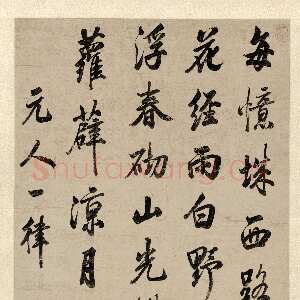 每憶西路
花經雨白野
浮春砌山光
蘿薜涼月
元人一律